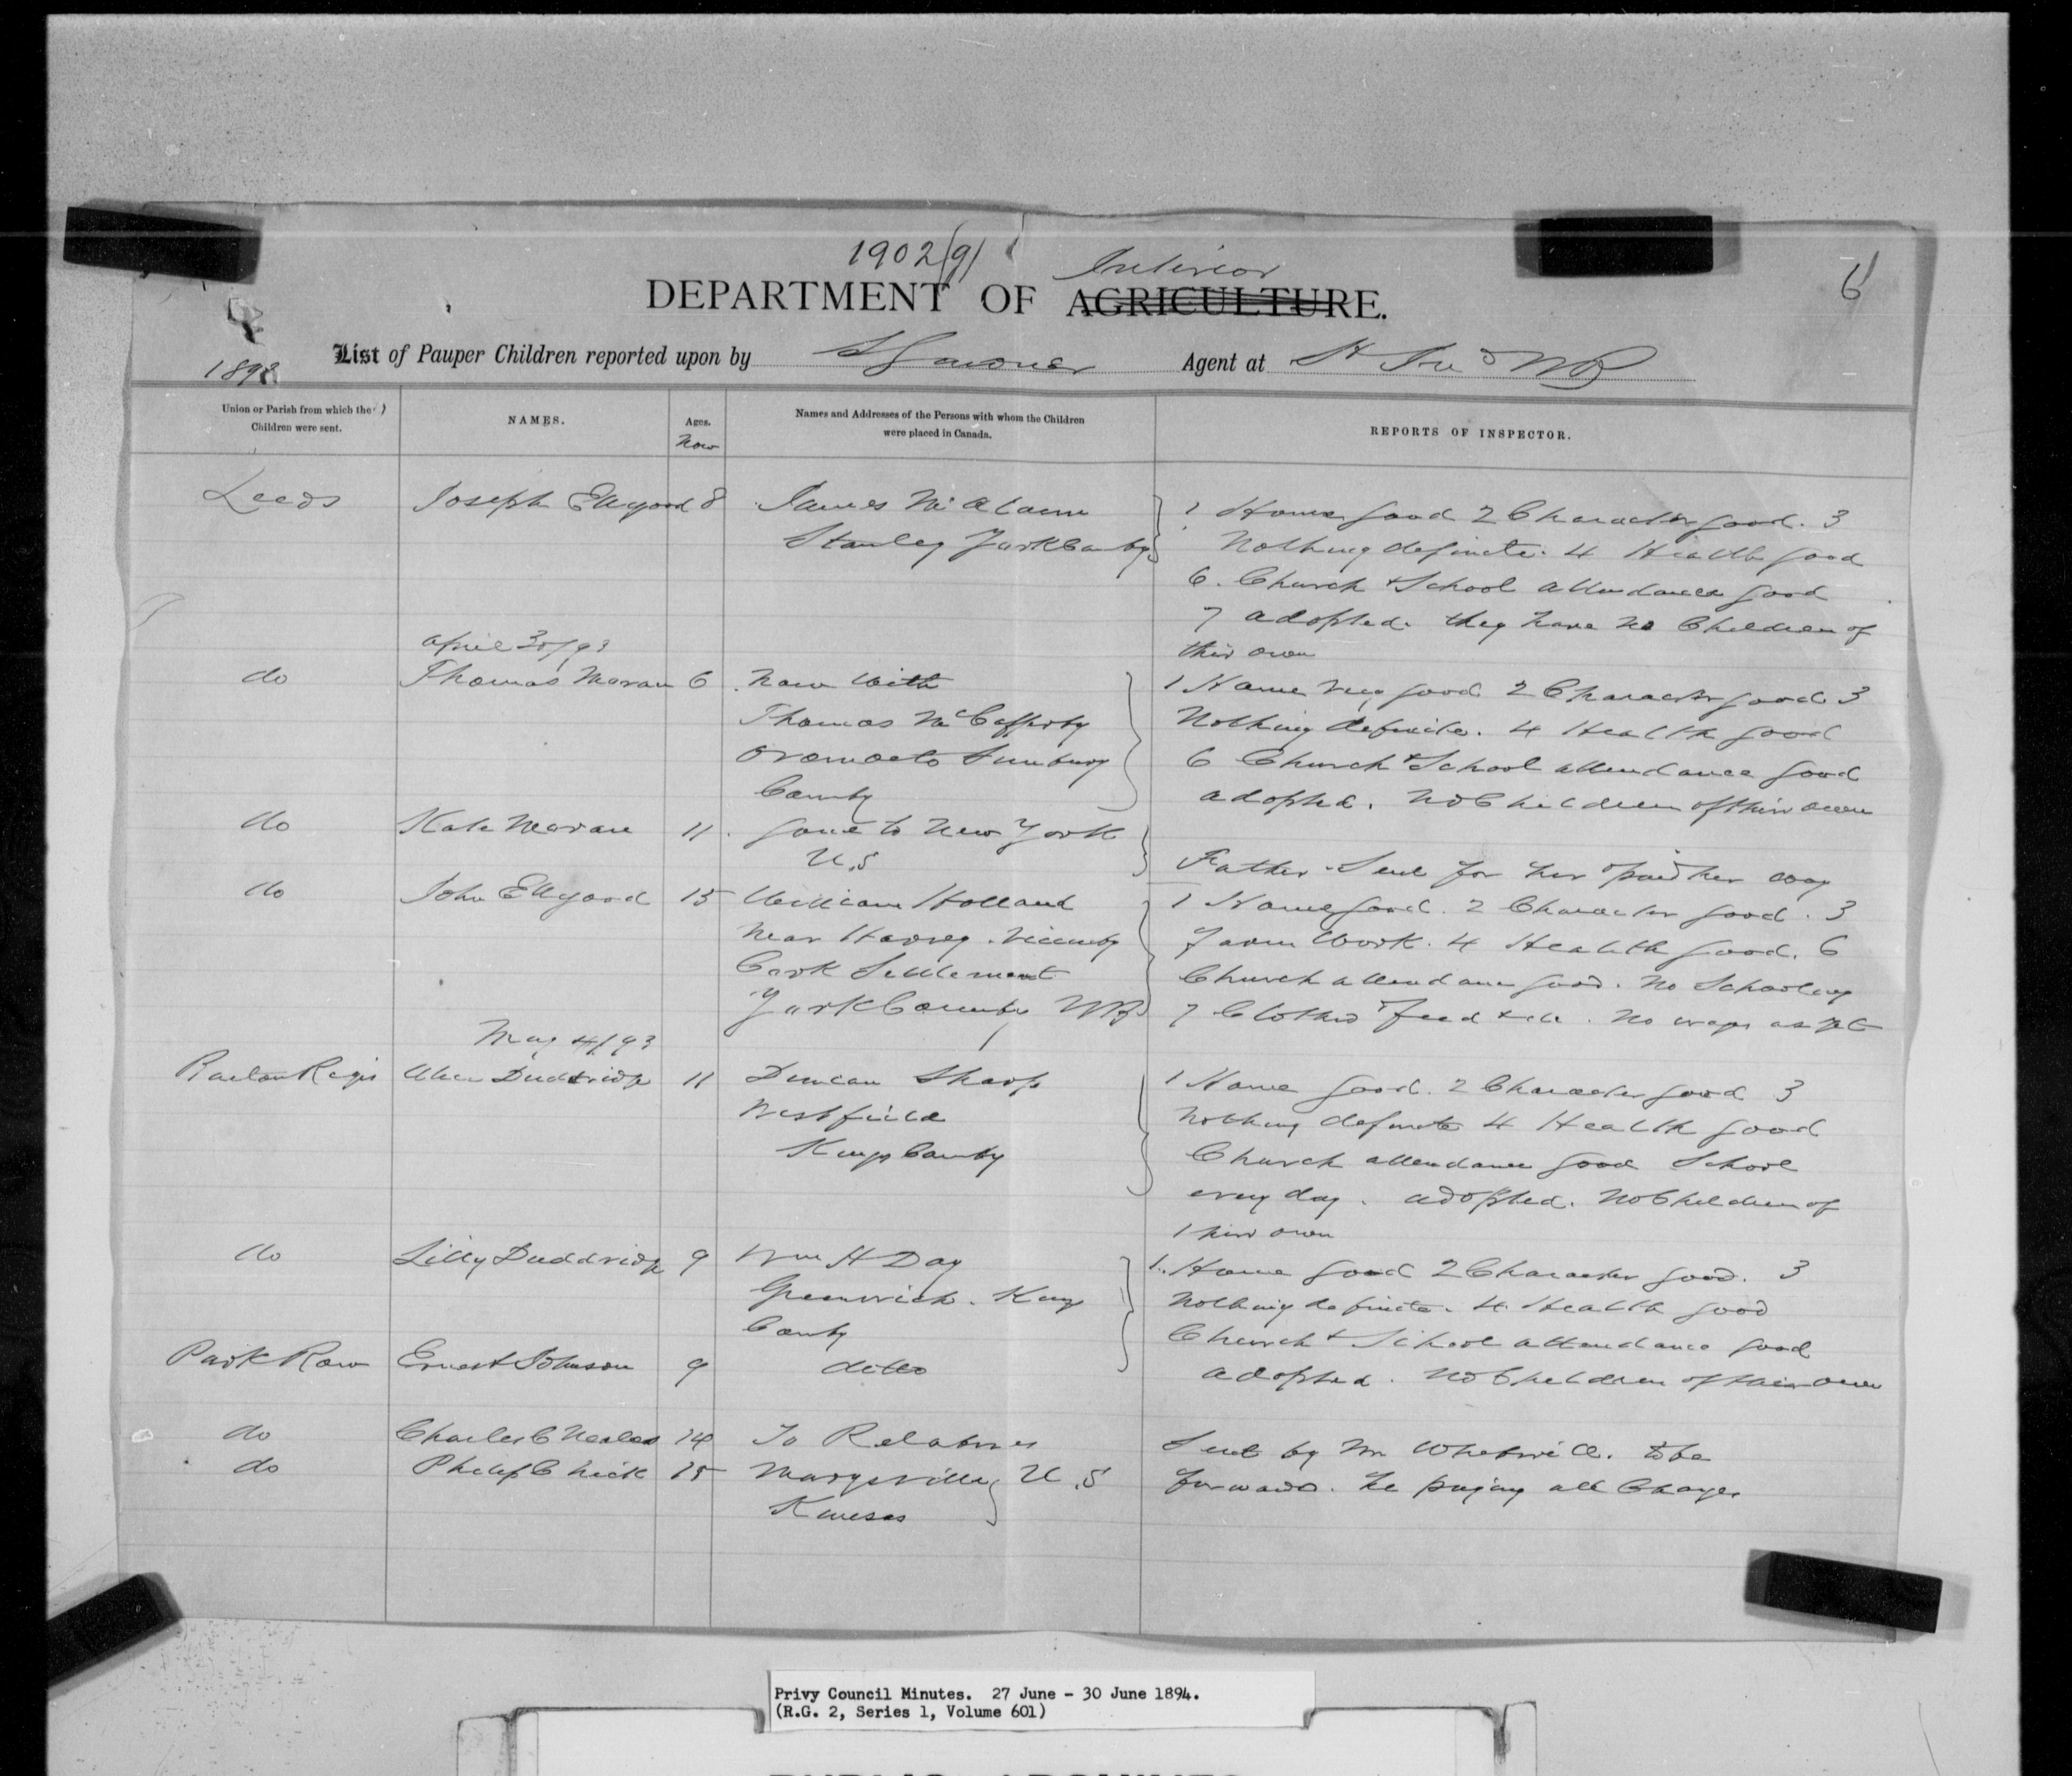 1902(g)
Interior
6
DEPARTMENT OF AGRICULTURE.
List of Pauper Children reported upon by S Gardner Agent at St Jno NB
189
Union or Parish from which the Children were sent. NAMES. Ages. Now Names and Addresses of the Persons with whom the Children were placed in Canada. REPORTS OF INSPECTOR.
Leeds Joseph Ellgood 8 James McAloon 1 Home good 2 Character good. 3
Stanley York County Nothing definite. 4 Health good
6. Church & School attendance good
7 adopted. they have no Children of
their own
April 30/93
do Thomas Moran 6 now with 1 Home very good 2 Character good 3
Thomas McCafferty Nothing definite. 4 Health good
Oromocto Sunbury 6 Church & School attendance good
County adopted. No Children of their own
do Kate Moran 11 gone to New York
U.S Father Sent for her & paid her way
do John Ellgood 15 William Holland 1 Home good. 2 Character good. 3
Near Harvey vicinity farm work. 4 Health good. 6
Cork Settlement Church attendance good. No Schooling
York County NB 7 Clothes feed &c. No wages as yet
May 4/93
Rowley Regis Alice Duddridge 11 Duncan Sharp 1 Home good. 2 Character good 3
Westfield Nothing definite 4 Health good
Kings County Church attendance good School
every day. adopted. No Children of
their own
do Lilly Duddridge 9 Wm H Day 1. Home good 2 Character good. 3
Greenwich. Kings Nothing definite. 4. Health good
County Church & School attendance good
Park Row Ernest Johnson 9 ditto adopted. No Children of their own
do Charles C 14 To Relatives Sent by Mr Whetwill. to be
do Philip Chick 15 Marysville, U.S forward. he paying all Charges
Kansas
Privy Council Minutes. 27 June - 30 June 1894.
(R.G. 2, Series 1, Volume 601)